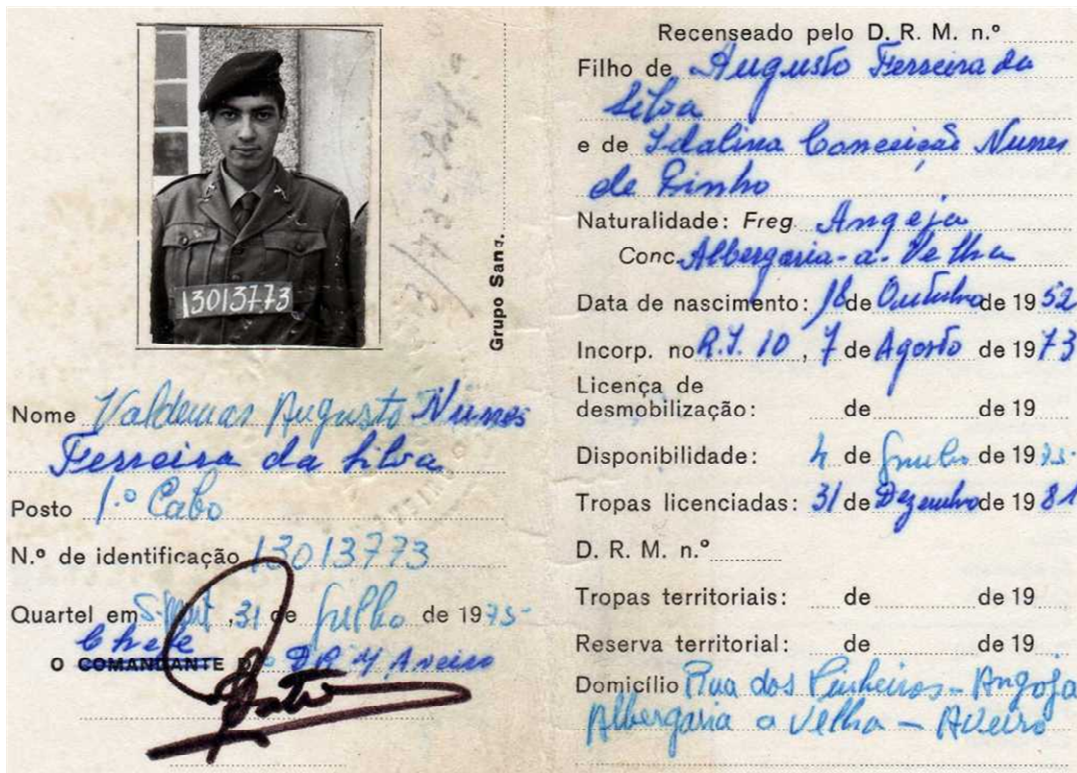 13013773
Grupo Sang.
Nome Valdemar Augusto Nunes
Ferreira da Silva
Posto 1.º Cabo
N.º de identificação 13013773
Quartel em , 31 de Julho de 1975
Chefe
O COMANDANTE D. R. M. Aveiro
Recenseado pelo D. R. M. n.º
Filho de Augusto Ferreira da
Silva
e de Idalina Conceição Nunes
de Pinho
Naturalidade: Freg Angeja
Conc. Albergaria-a-Velha
Data de nascimento: 18 de Outubro de 1952
Incorp. no R. I. 10, 7 de Agosto de 1973
Licença de
desmobilização: de de 19
Disponibilidade: 4 de de 1975
Tropas licenciadas: 31 de Dezembro de 1981
D. R. M. n.º
Tropas territoriais: de de 19
Reserva territorial: de de 19
Domicílio Rua dos Pinheiros - Angeja
Albergaria a Velha - Aveiro